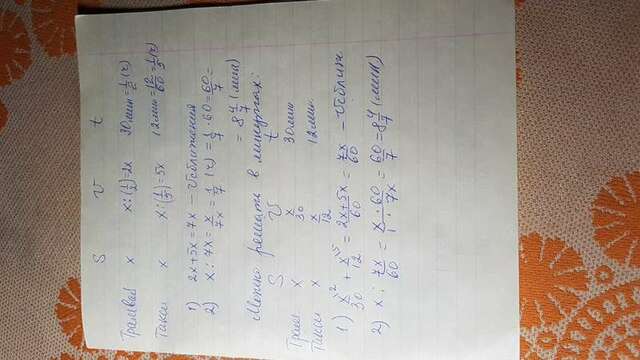 S V t
Трамвай x x:(1/2)=2x 30мин=1/2(ч)
Такси x x:(1/5)=5x 12мин=12/60=1/5(ч)
1) 2x+5x=7x – Vсближения
2) x:7x=x/7x=1/7(ч)=1/7·60=60/7=
=8 4/7(мин)
Можно решать в минутах:
S V t
Трам. x x/30 30мин
Такси x x/12 12мин.
1) x\2/30+x\5/12=2x+5x/60=7x/60 – Vсближ
2) x:7x/60=x·60/1·7x=60/7=8 4/7(мин)